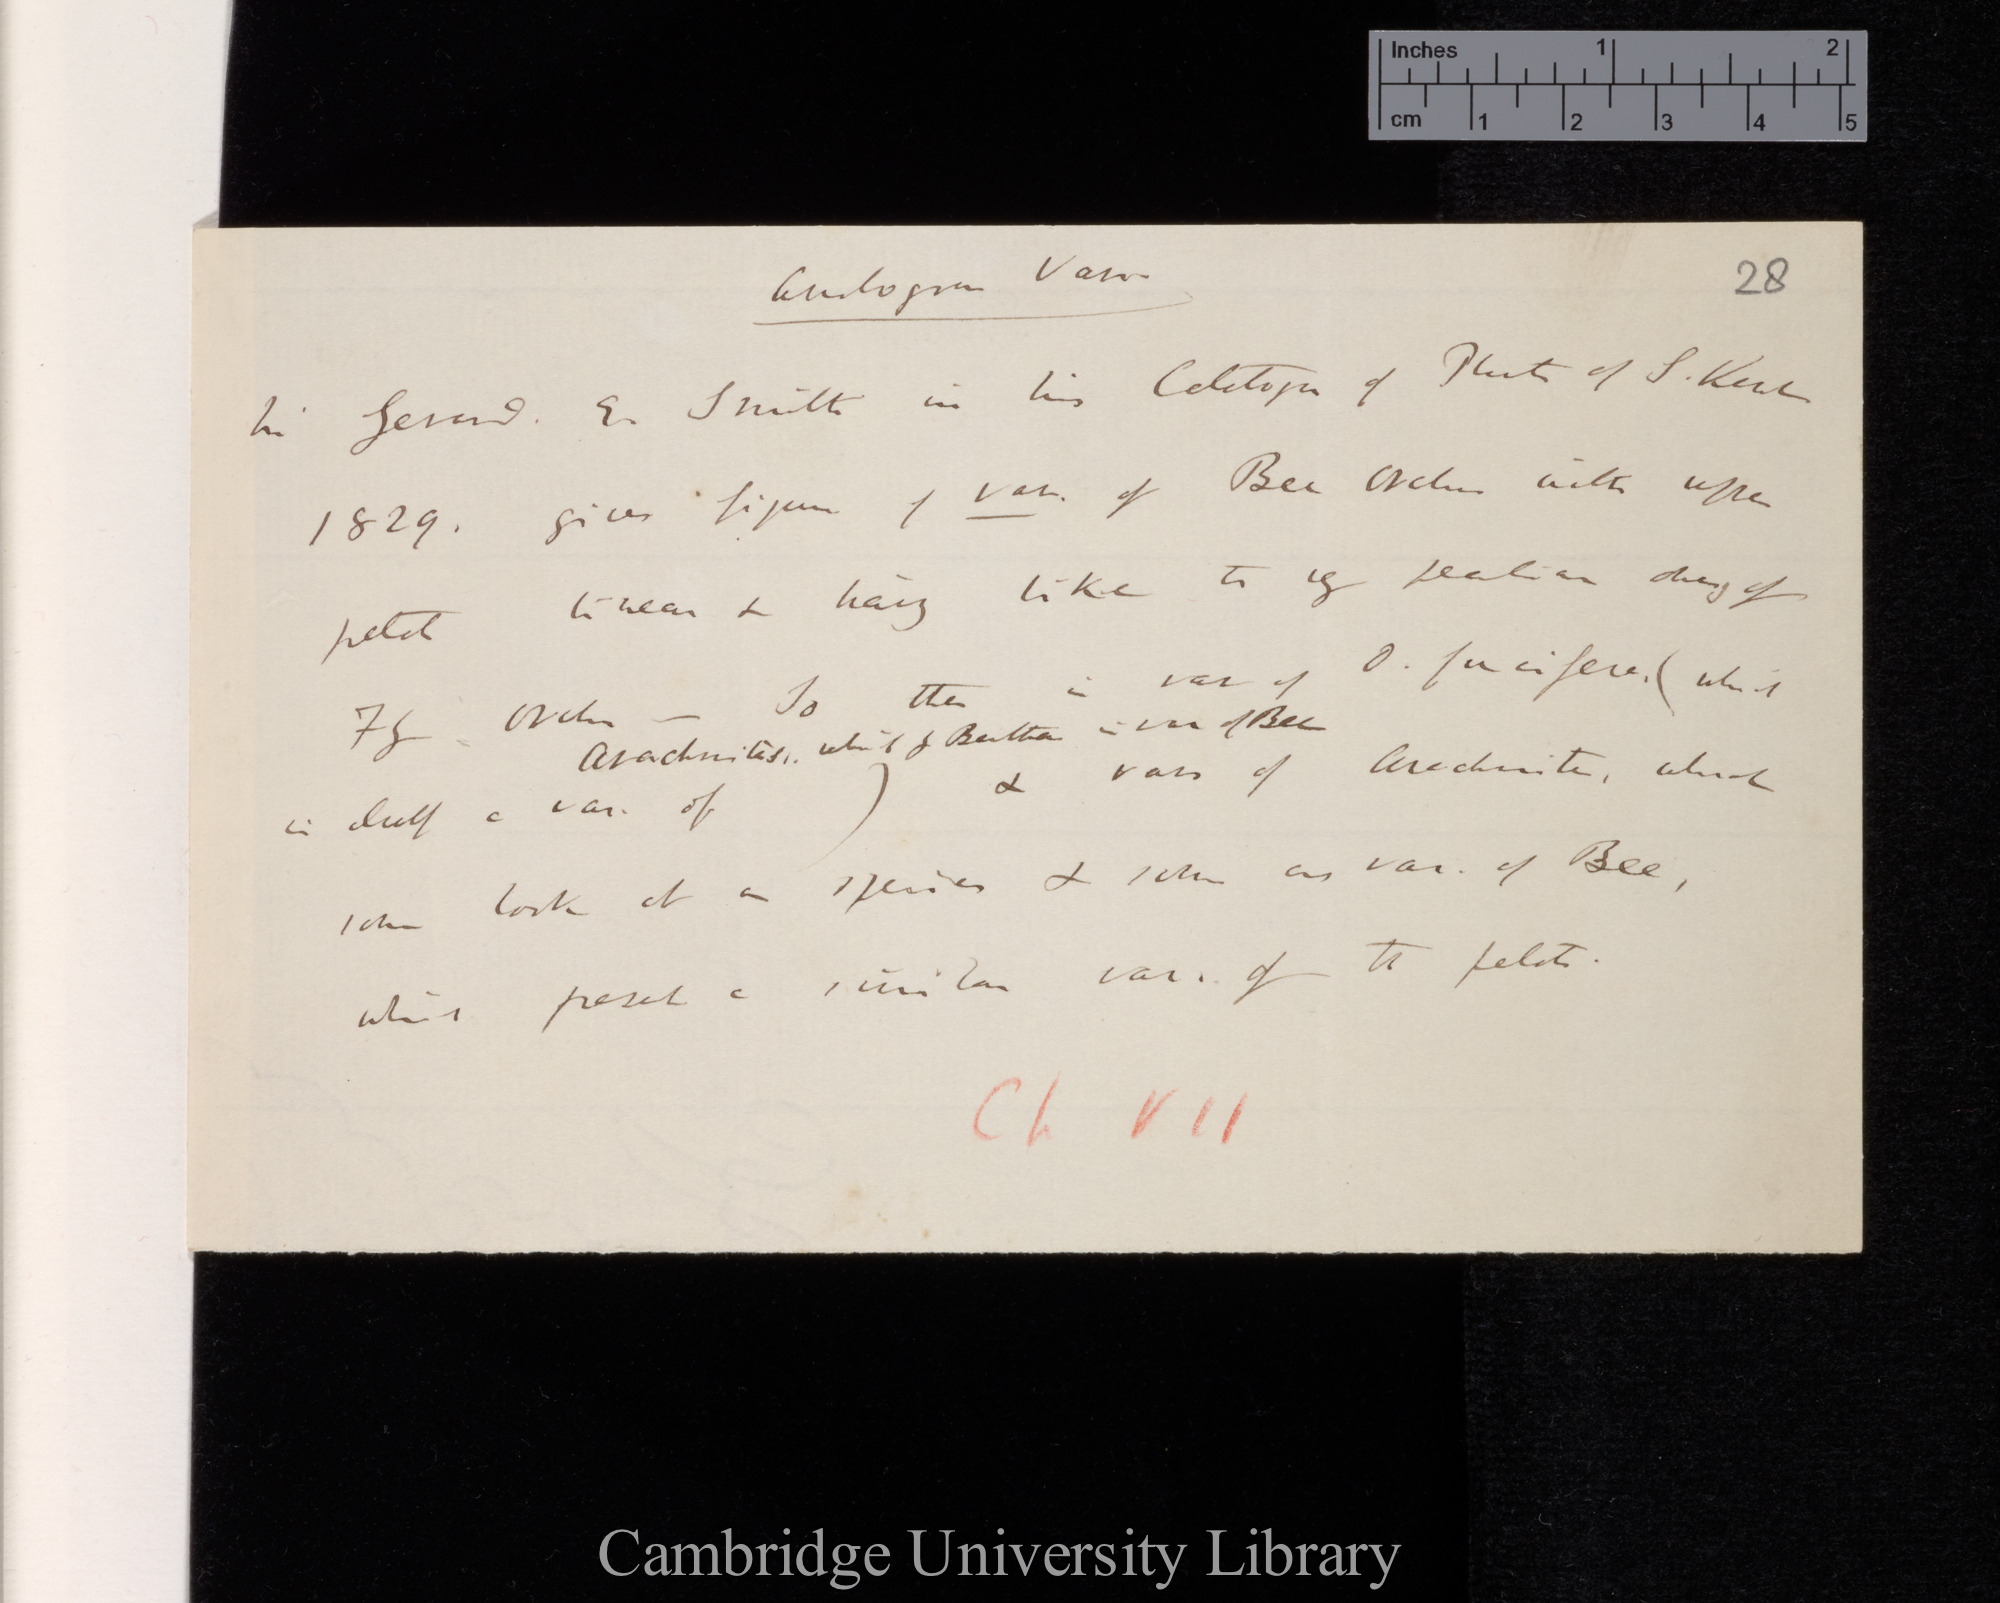 Inches 1 2
cm 1 2 3 4 5
28
Analogous Varn
Gerard. E. Smith in his Catalogue of Plants of S. Kent
1829. gives figure of var. of Bee Orchis with upper
petals linear & hairy like to
Fly Orchis — So there is var of O. fucifera, (which
Arachnites, which is var of Bee
is itself a var. of ) & vars of Arachnites, which
some look at as species & some as var. of Bee,
which present a similar var. of the petals.
Ch VII
Cambridge University Library